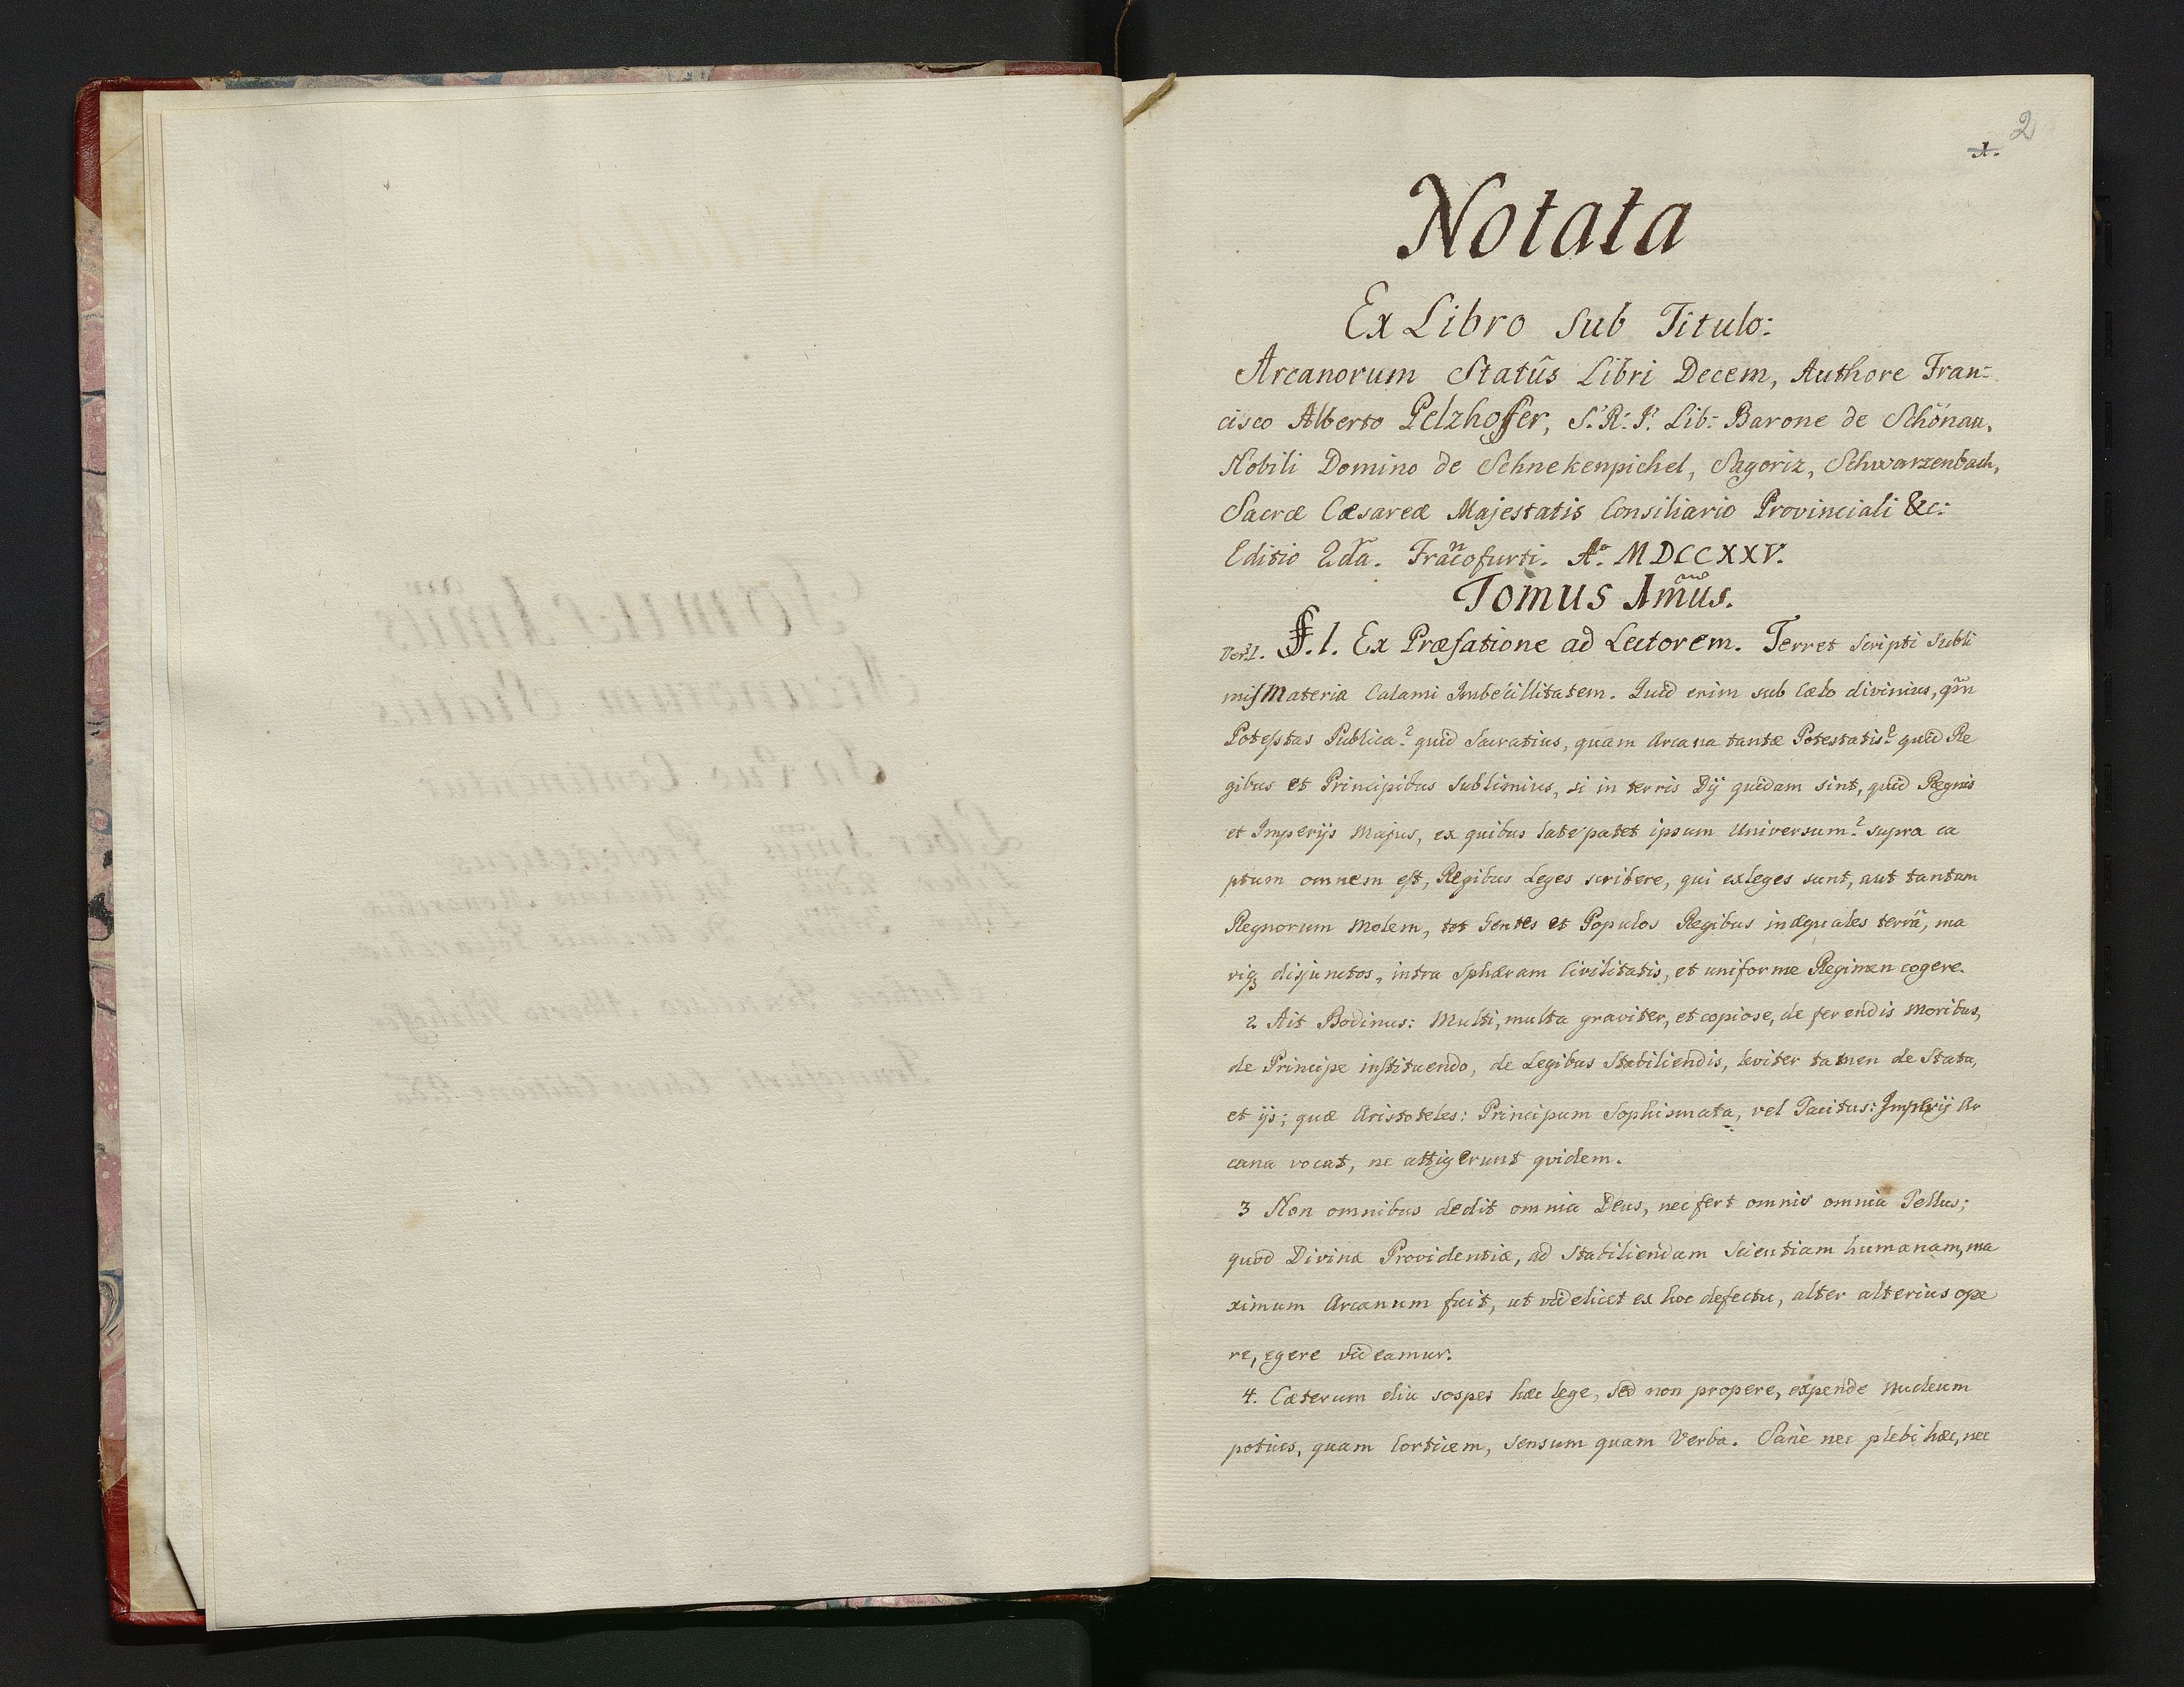 2
1.
Notata
Ex Libro Sub Titulo:
Arcanorum Statûs Libri Decem, Authore Fran=
cisco Alberto Pelzhoffer, S: R: I: Lib: Barone de Schönau,
Nobili Domino de Schnekenpichel, Sagoriz, Schwarzenbach,
Sacræ Cæsareæ Majestatis Consiliario Provinciali &c:
Editio 2da. Francofurti. Ao. MDCCXXV.
Tomus 1mus.
Vers 1. §. 1. Ex Præfatione ad Lectorem. Terret scripti subli
mis Materia Calami Imbecillitatem. Quid enim sub Cælo divinius, qm̃
Potestas Publica? quid Sacratius, quam Arcana tantæ Potestatis? quid Re
gibus et Principibus Sublimius, si in terris Dij quidam sint, quid Regnis
et Imperijs Majus, ex quibus late patet ipsum Universum? supra ca
ptum omnem est, Regibus Leges scribere, qui exleges sunt, aut tantam
Regnorum Molem, tot Gentes et Populos Regibus inæquales terrâ, ma
riq3 disjunctos, intra Sphæram Civilitatis, et uniforme Regimen cogere.
2 Ait Bodinus: Multi, multa graviter, et copiose, de ferendis Moribus,
de Principe instituendo, de Legibus Stabiliendis, leviter tamen de Statu,
et ijs; quæ Aristoteles: Principum Sophismata, vel Tacitus: Imperij Ar
cana vocat, ne attigerunt quidem.
3 Non omnibus dedit omnia Deus, nec fert omnis omnia Tellus;
quod Divinæ Providentiæ, ad Stabiliendam Scientiam humanam, ma
ximum Arcanum fuit, ut videlicet ex hoc defectu, alter alterius ope
re, egere videamur.
4. Cæterum diu sospes hæc lege, sed non propere, expende Nucleum
potius, quam Corticem, sensum quam Verba. Sane nec plebi hæc, nec